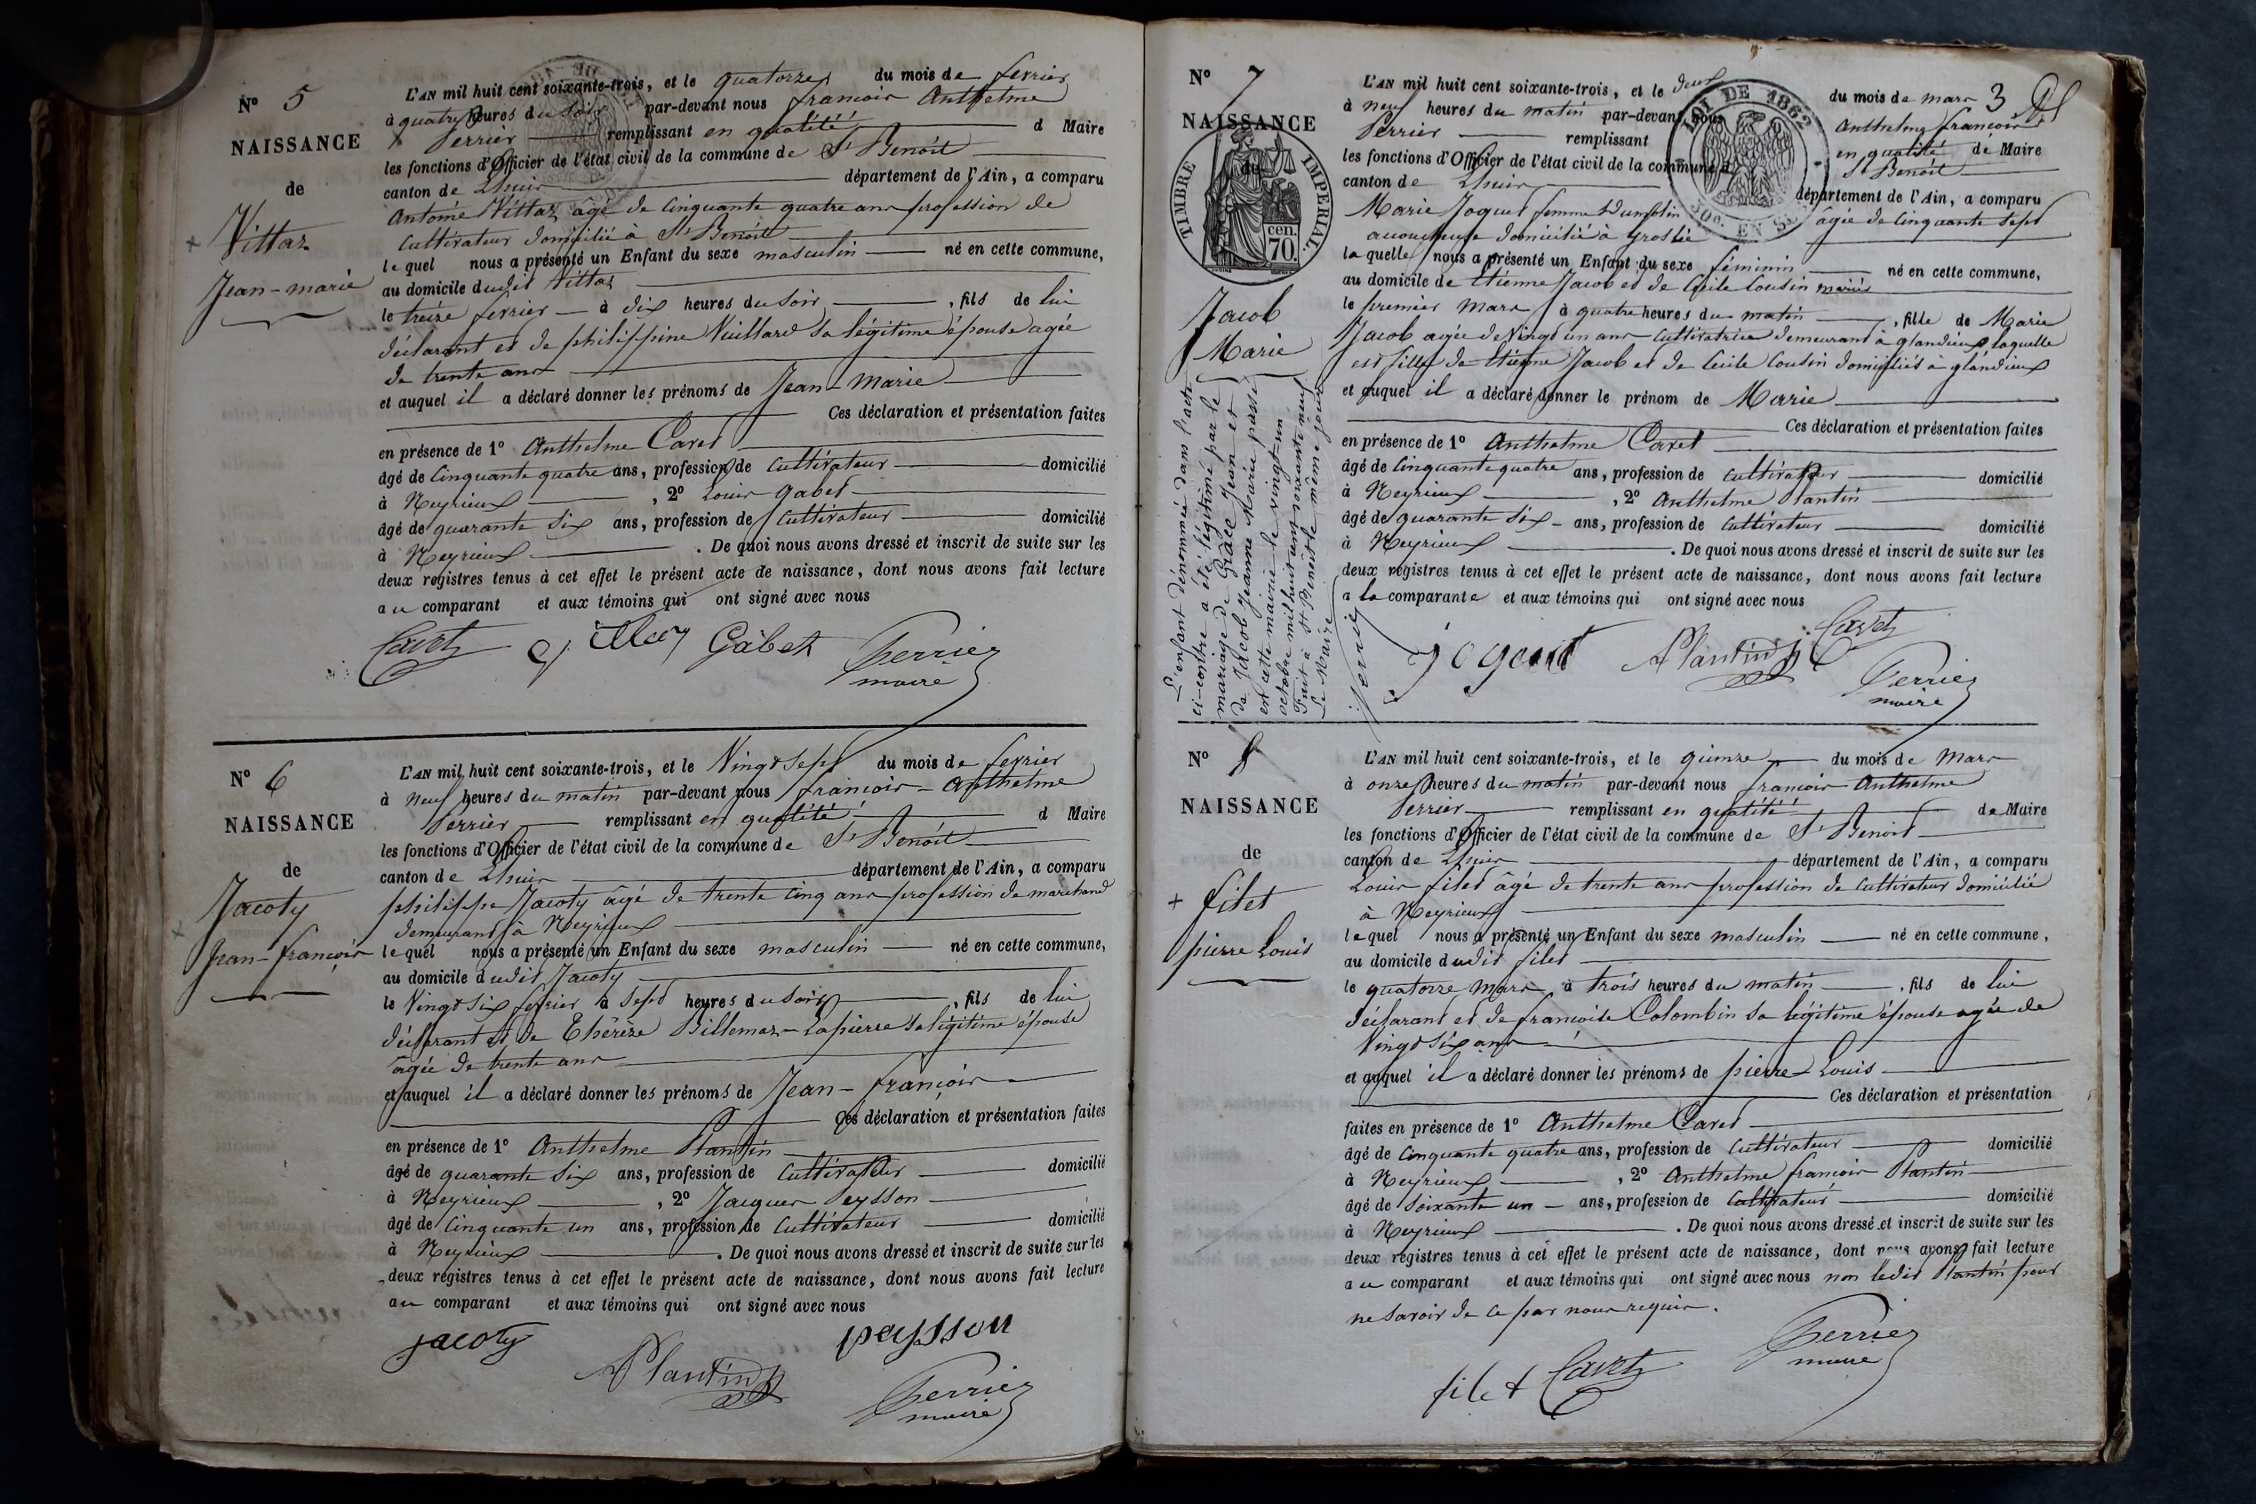 N° 5
NAISSANCE
de
Vittaz
Jean-marie
L'AN mil huit cent soixante-trois, et le quatorze du mois de fevrier
à quatre heures du soir par-devant nous francois Anthelme
Perrier remplissant en qualité d Maire
les fonctions d'Officier de l'état civil de la commune de St Benoit
canton de Lhuis département de l'Ain, a comparu
Antoine Vittaz âgé de Cinquante quatre ans profession de
Cultivateur domicilié à St Benoit
lequel nous a présenté un Enfant du sexe masculin né en cette commune,
au domicile dudit Vittaz
le treize fevrier à dix heures du soir, fils de lui
déclarant et de philippine Vuillard sa légitime épouse agée
de trente ans
et auquel il a déclaré donner les prénoms de Jean-marie
Ces déclaration et présentation faites
en présence de 1° Anthelme Cavet
âgé de Cinquante quatre ans, profession de Cultivateur domicilié
à Neyrieux, 2° Louis gabet
âgé de quarante six ans, profession de Cultivateur domicilié
à Neyrieux. De quoi nous avons dressé et inscrit de suite sur les
deux registres tenus à cet effet le présent acte de naissance, dont nous avons fait lecture
au comparant et aux témoins qui ont signé avec nous
Cavet Gabet Perrier
maire
N° 6
NAISSANCE
de
Jacoty
Jean-françois
L'AN mil huit cent soixante-trois, et le Vingt sept du mois de fevrier
à neuf heures du matin par-devant nous francois-Anthelme
Perrier remplissant en qualité d Maire
les fonctions d'Officier de l'état civil de la commune de St Benoit
canton de Lhuis département de l'Ain, a comparu
philippe Jacoty âgé de trente cinq ans profession de marchand
demeurant à Neyrieux
lequel nous a présenté un Enfant du sexe masculin né en cette commune,
au domicile dudit Jacoty
le Vingt six fevrier à sept heures du soir, fils de lui
déclarant et de Thérèze Billemaz-Lapierre sa légitime épouse
âgée de trente ans
et auquel il a déclaré donner les prénoms de Jean-françois
Ces déclaration et présentation faites
en présence de 1° Anthelme Plantin
âgé de quarante six ans, profession de Cultivateur domicilié
à Neyrieux, 2° Jacques Peysson
âgé de Cinquante un ans, profession de Cultivateur domicilié
à Neyrieux. De quoi nous avons dressé et inscrit de suite sur les
deux registres tenus à cet effet le présent acte de naissance, dont nous avons fait lecture
au comparant et aux témoins qui ont signé avec nous
jacoty APlantin paysson Perrier
maire
N° 7
NAISSANCE
de
TIMBRE IMPERIAL
cen.
70.
Jacob
Marie
L'enfant dénommée dans l'acte
ci-contre a été légitimé par le
mariage de Grace Jean et
de Jacob Jeanne Marie passé
en cette mairie le vingt-un
octobre mil huit cent soixante neuf
Fait à St Benoît le même jour
Le Maire
Perrier
LOI DE 1862
3
L'AN mil huit cent soixante-trois, et le deux du mois de mars
à neuf heures du matin par-devant nous Anthelme françois
Perrier remplissant en qualité de Maire
les fonctions d'Officier de l'état civil de la commune de St Benoit
canton de Lhuis département de l'Ain, a comparu
Marie Joguet femme Dumolin agée de Cinquante sept
accoucheuse domiciliée à groslée
laquelle nous a présenté un Enfant du sexe féminin né en cette commune,
au domicile de Etienne Jacob et de Cecile Cousin mariés
le premier mars à quatre heures du matin, fille de Marie
Jacob agée de Vingt un ans Cultivatrice demeurant à glandieux laquelle
est fille de Etienne Jacob et de Cecile Cousin domiciliés à glandieux
et auquel il a déclaré donner le prénom de Marie
Ces déclaration et présentation faites
en présence de 1° Anthelme Cavet
âgé de Cinquante quatre ans, profession de Cultivateur domicilié
à Neyrieux, 2° Anthelme Plantin
âgé de quarante six ans, profession de Cultivateur domicilié
à Neyrieux. De quoi nous avons dressé et inscrit de suite sur les
deux registres tenus à cet effet le présent acte de naissance, dont nous avons fait lecture
a la comparante et aux témoins qui ont signé avec nous
APlantin Cavet
Perrier
maire
N° 8
NAISSANCE
de
filet
pierre Louis
L'AN mil huit cent soixante-trois, et le quinze du mois de mars
à onze heures du matin par-devant nous francois Anthelme
Perrier remplissant en qualité de Maire
les fonctions d'Officier de l'état civil de la commune de St Benoit
canton de Lhuis département de l'Ain, a comparu
Louis filet âgé de trente ans profession de Cultivateur domicilié
à Neyrieux
lequel nous a présenté un Enfant du sexe masculin né en cette commune,
au domicile dudit filet
le quatorze mars à trois heures du matin, fils de lui
déclarant et de francoise Colombin sa légitime épouse agée de
Vingt six ans
et auquel il a déclaré donner les prénoms de pierre Louis
Ces déclaration et présentation
faites en présence de 1° Anthelme Cavet
âgé de Cinquante quatre ans, profession de Cultivateur domicilié
à Neyrieux, 2° Anthelme francois Plantin
âgé de Soixante un ans, profession de Cultivateur domicilié
à Neyrieux. De quoi nous avons dressé et inscrit de suite sur les
deux registres tenus à cet effet le présent acte de naissance, dont nous avons fait lecture
au comparant et aux témoins qui ont signé avec nous non ledit Plantin pour
ne savoir de ce par nous requis.
filet Cavet Perrier
maire